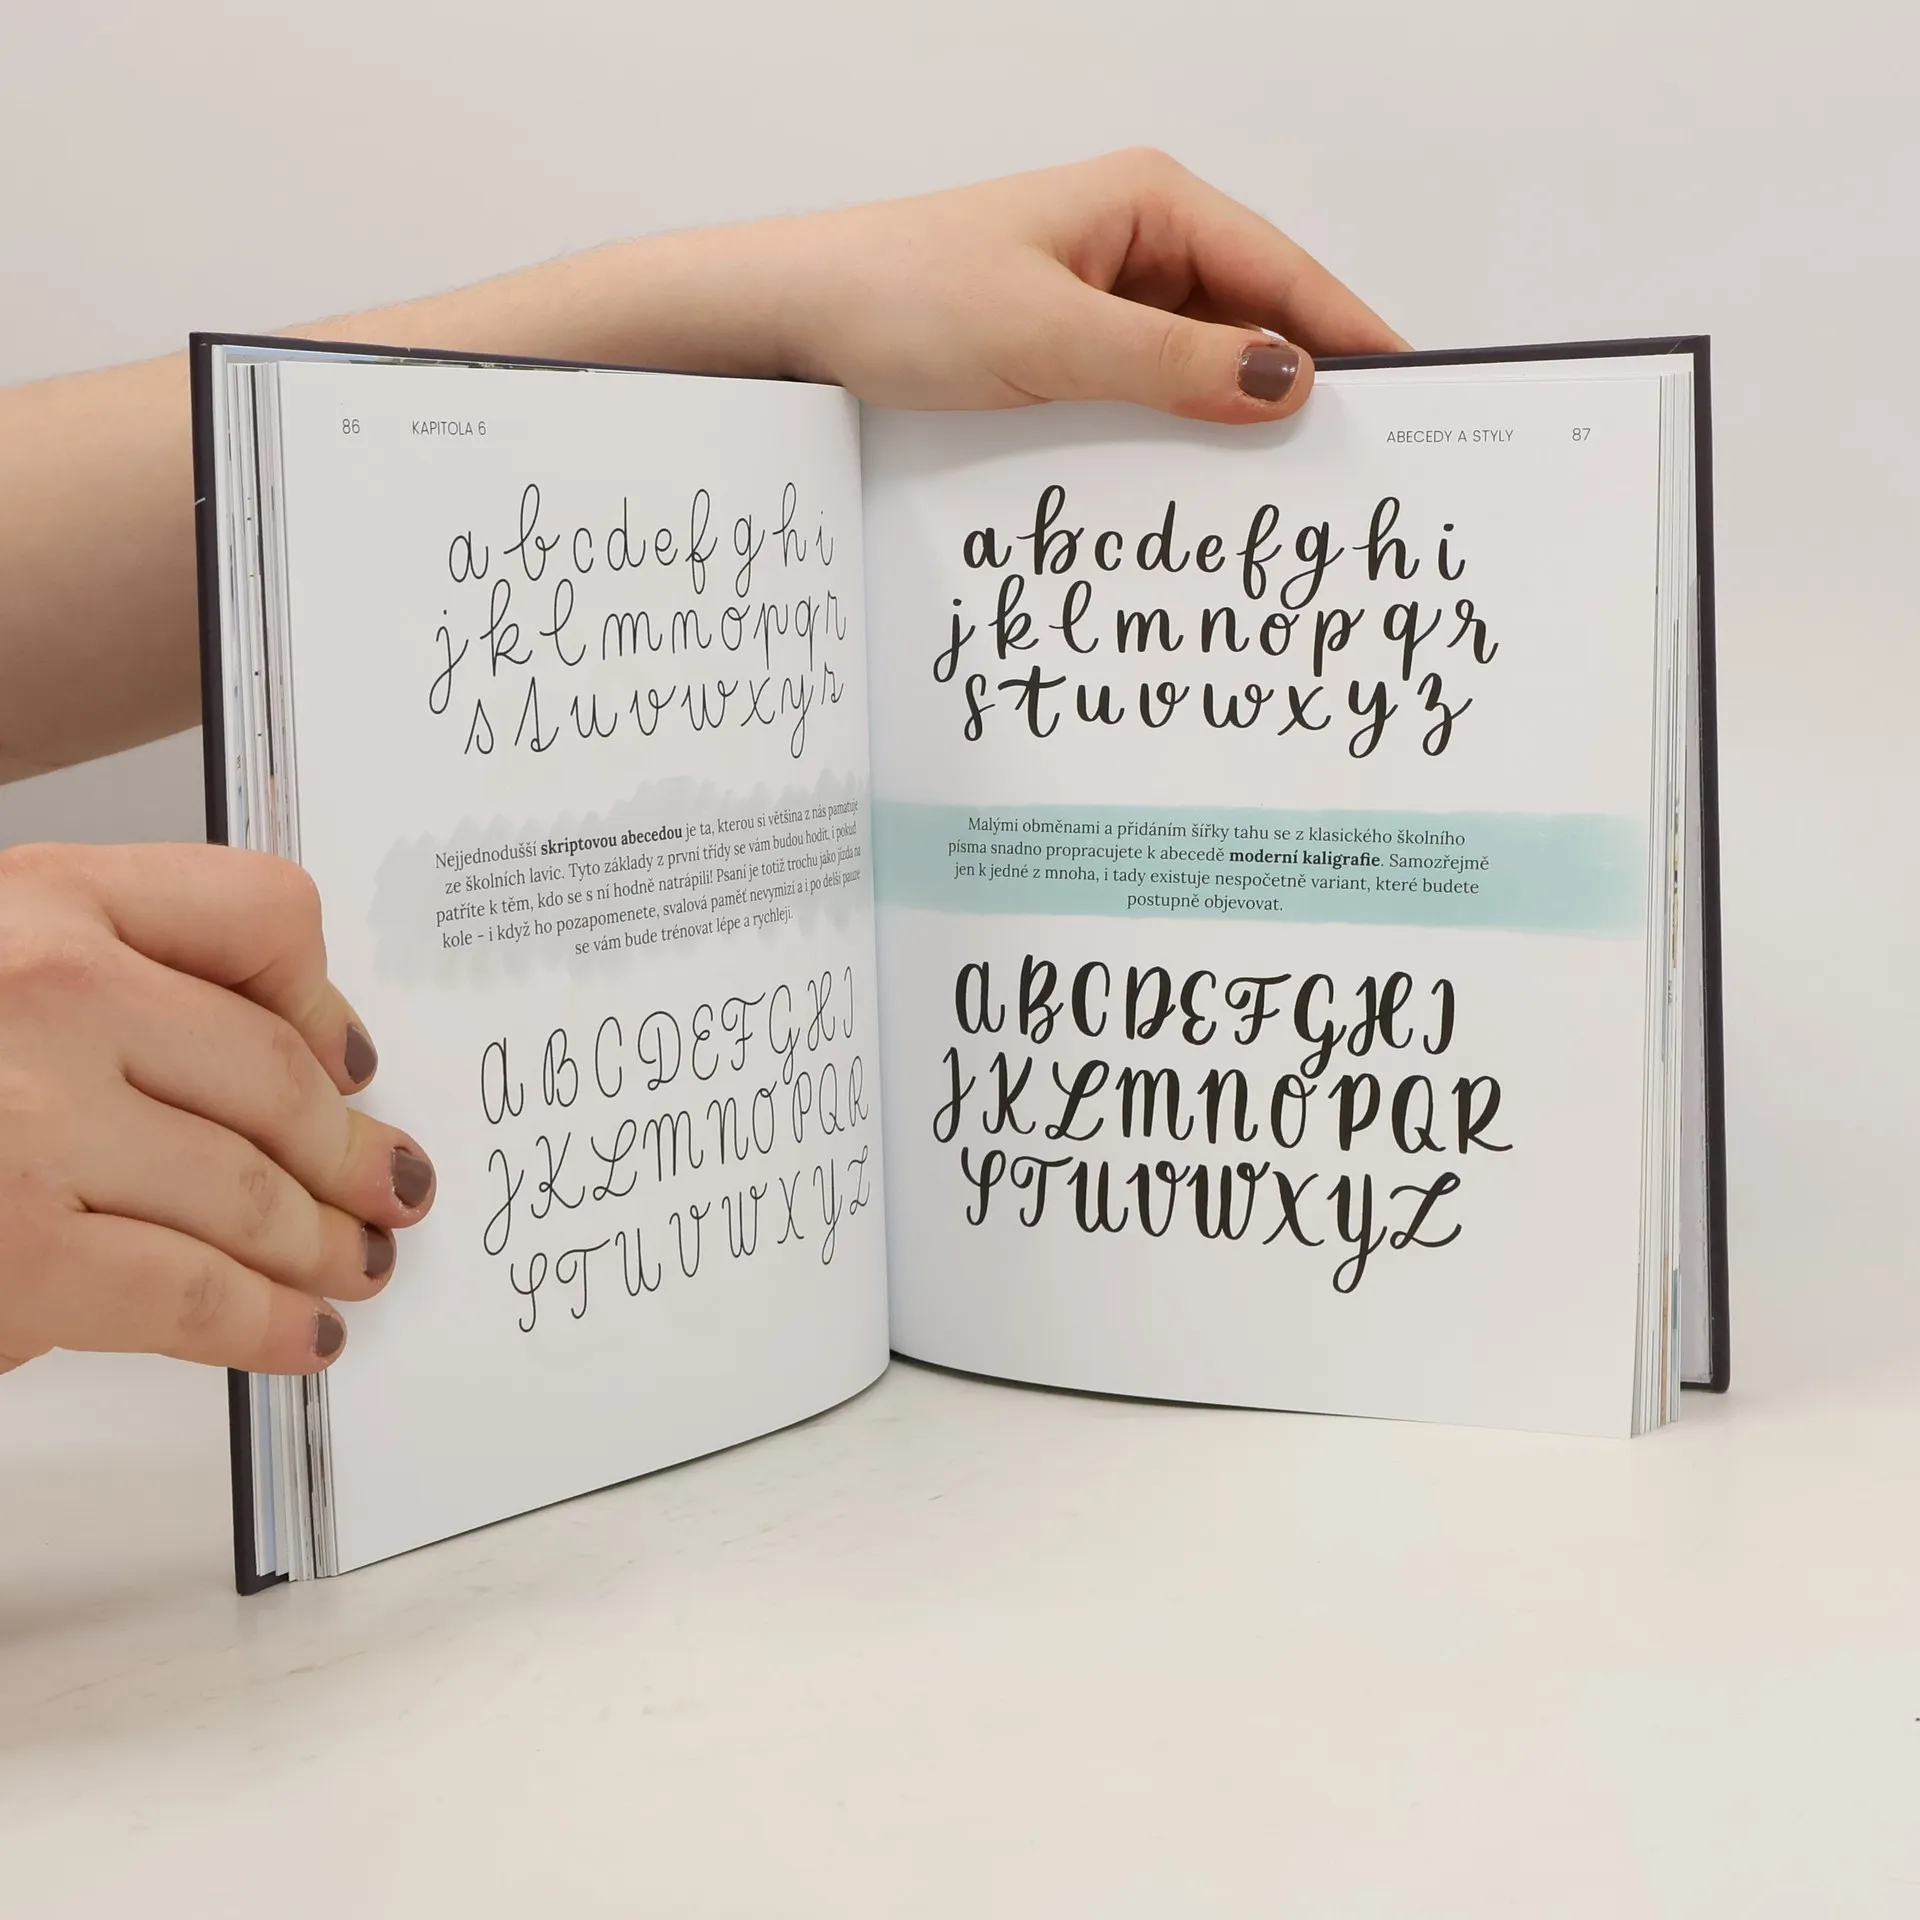 86 KAPITOLA 6
a b c d e f g h i
j k l m n o p q r
s t u v w x y z
Nejjednodušší skriptovou abecedou je ta, kterou si většina z nás pamatuje
ze školních lavic. Tyto základy z první třídy se vám budou hodit, i pokud
patříte k těm, kdo se s ní hodně natrápili! Psaní je totiž trochu jako jízda na
kole – i když ho pozapomenete, svalová paměť nevymizí a i po delší pauze
se vám bude trénovat lépe a rychleji.
A B C D E F G H I
J K L M N O P Q R
S T U V W X Y Z
ABECEDY A STYLY 87
a b c d e f g h i
j k l m n o p q r
s t u v w x y z
Malými obměnami a přidáním šířky tahu se z klasického školního
písma snadno propracujete k abecedě moderní kaligrafie. Samozřejmě
jen k jedné z mnoha, i tady existuje nespočetně variant, které budete
postupně objevovat.
A B C D E F G H I
J K L M N O P Q R
S T U V W X Y Z